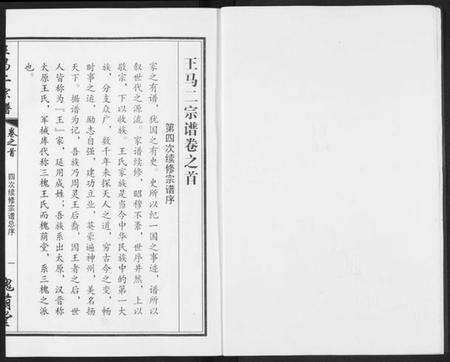 王马二宗谱卷之首
第四次续修宗谱序
家之有谱，犹国之有史。史所以纪一国之事迹，谱所以
叙世代之源流。家谱续修，昭穆不紊，世序井然，上以
敬宗，下以收族。王氏家族是当今中华民族中的第一大
族，分支众广，数千年来探天人之道，穷古今之变，畅
时事之运，励志自强，建功立业，英豪遍神州，美名扬
天下。据谱为记，吾族乃周灵王后裔，因王者之后，世
人皆称为“王”家，延用成姓；吾族系出太原，汉晋称
太原王氏，军械库代称三槐王氏而槐荫堂，系三槐之派
也。
王马二宗谱
卷之首
四次续修宗谱总序
一
槐荫堂